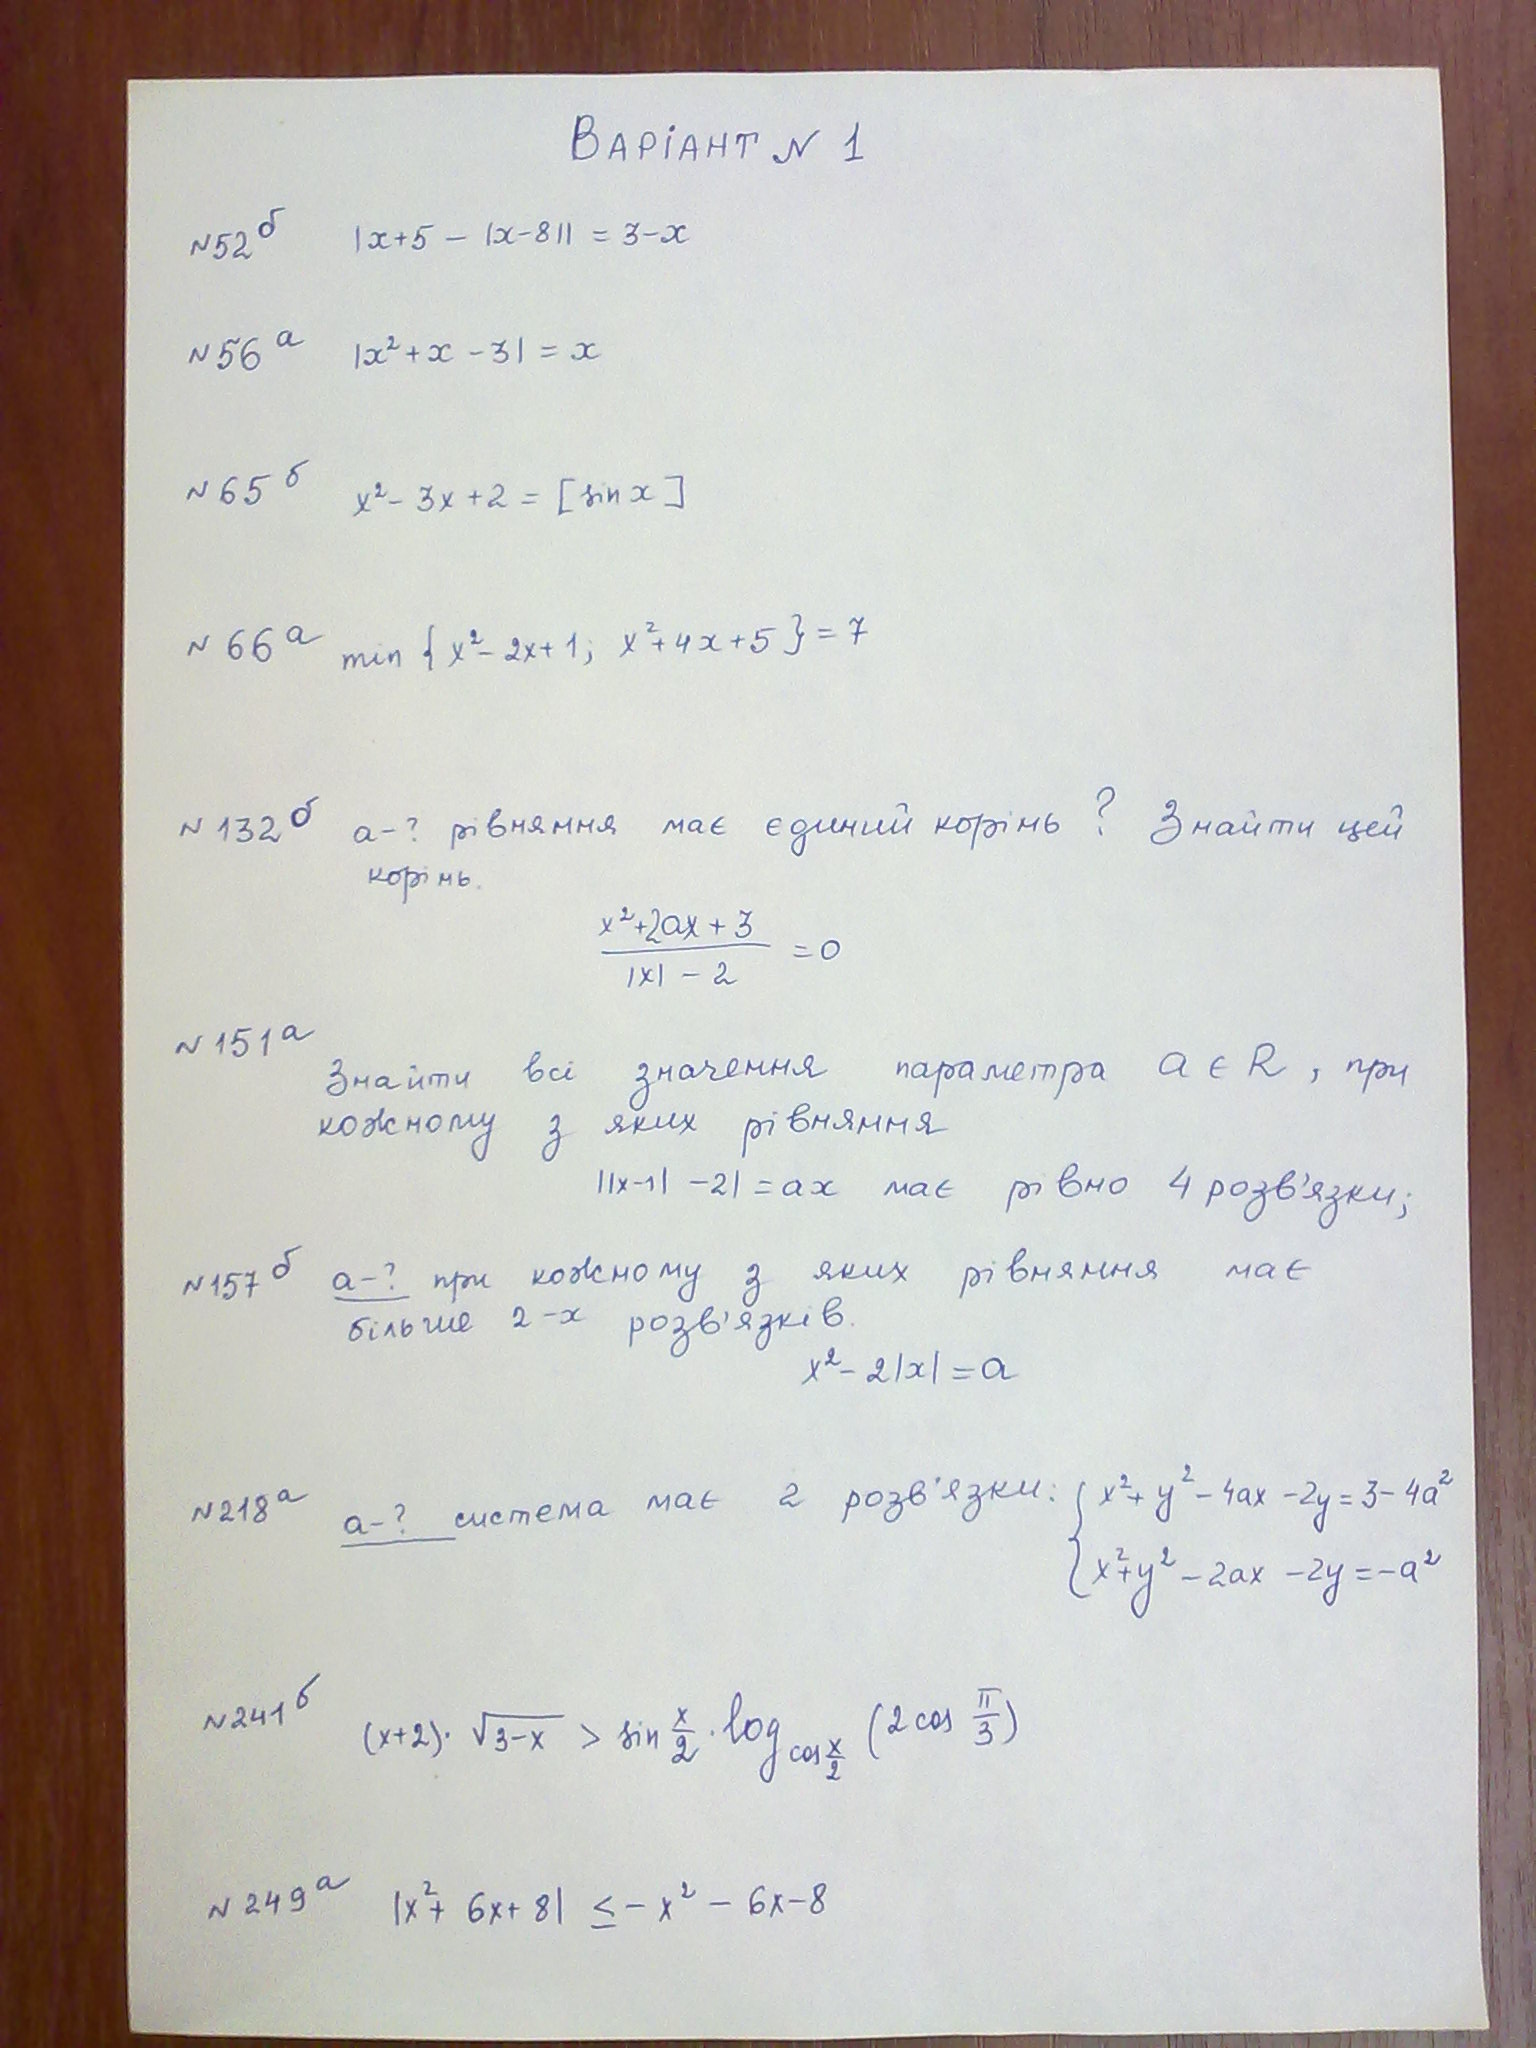 Варіант N 1
N52 б |x+5 - |x-8|| = 3-x
N56 а |x²+x-3| = x
N65 б x²- 3x+2 = [sin x]
N66 а min { x²- 2x+1; x²+4x+5 } = 7
N132 б a-? рівняння має єдиний корінь? Знайти цей
корінь.
x²+2ax+3
|x| - 2 = 0
N151 а
Знайти всі значення параметра a ∈ R, при
кожному з яких рівняння
||x-1| -2| = ax має рівно 4 розв'язки;
N157 б a-? при кожному з яких рівняння має
більше 2-х розв'язків.
x²- 2|x| = a
N218 а a-? система має 2 розв'язки: { x²+ y²- 4ax -2y = 3- 4a²
x²+y² - 2ax -2y = -a²
N241 б (x+2)· √3-x > sin x/2 · log cos x/2 (2 cos π/3)
N249 а |x²+ 6x+ 8| ≤ - x² - 6x-8